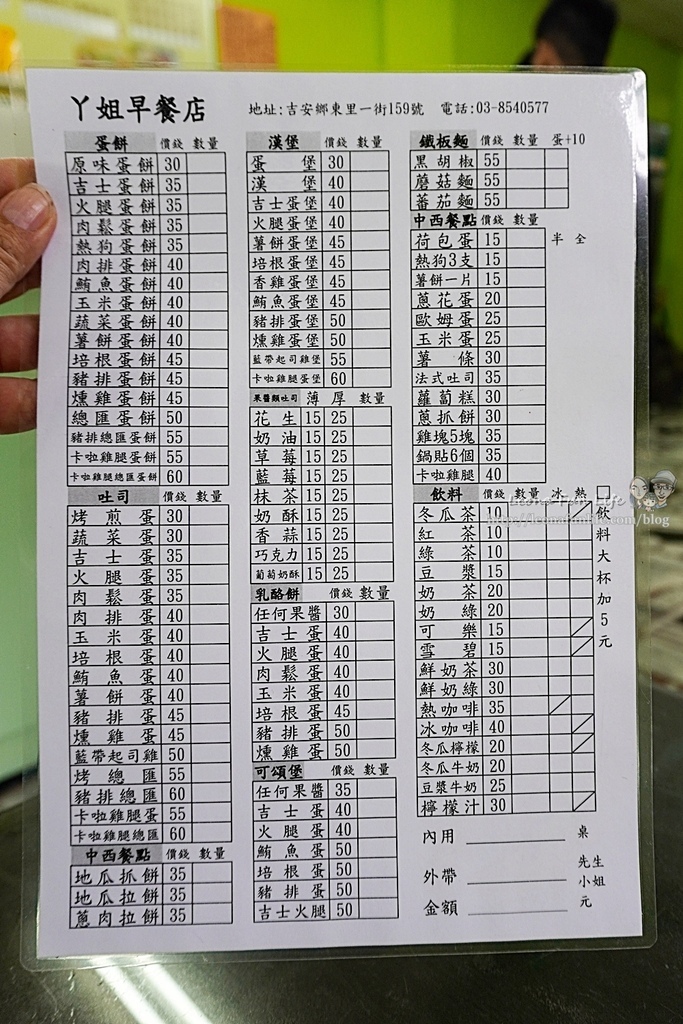 丫姐早餐店 地址:吉安鄉東里一街159號 電話:03-8540577
蛋餅 價錢 數量
原味蛋餅 30
吉士蛋餅 35
火腿蛋餅 35
肉鬆蛋餅 35
熱狗蛋餅 35
肉排蛋餅 40
鮪魚蛋餅 40
玉米蛋餅 40
蔬菜蛋餅 40
薯餅蛋餅 40
培根蛋餅 45
豬排蛋餅 45
燻雞蛋餅 45
總匯蛋餅 50
豬排總匯蛋餅 55
卡啦雞腿蛋餅 55
卡啦雞腿總匯蛋餅 60
吐司 價錢 數量
烤煎蛋 30
蔬菜蛋 30
吉士蛋 35
火腿蛋 35
肉鬆蛋 35
肉排蛋 40
玉米蛋 40
培根蛋 40
鮪魚蛋 40
薯餅蛋 40
豬排蛋 45
燻雞蛋 45
藍帶起司雞 50
烤總匯 55
豬排總匯 60
卡啦雞腿蛋 55
卡啦雞腿總匯 60
中西餐點 價錢 數量
地瓜抓餅 35
地瓜拉餅 35
蔥肉拉餅 35
漢堡 價錢 數量
蛋堡 30
漢堡 40
吉士蛋堡 40
火腿蛋堡 40
薯餅蛋堡 45
培根蛋堡 45
香雞蛋堡 45
鮪魚蛋堡 45
豬排蛋堡 50
燻雞蛋堡 50
藍帶起司雞堡 55
卡啦雞腿蛋堡 60
果醬類吐司 薄 厚 數量
花生 15 25
奶油 15 25
草莓 15 25
藍莓 15 25
抹茶 15 25
奶酥 15 25
香蒜 15 25
巧克力 15 25
葡萄奶酥 15 25
乳酪餅 價錢 數量
任何果醬 30
吉士蛋 40
火腿蛋 40
肉鬆蛋 40
玉米蛋 40
培根蛋 45
豬排蛋 50
燻雞蛋 50
可頌堡 價錢 數量
任何果醬 35
吉士蛋 40
火腿蛋 40
鮪魚蛋 50
培根蛋 50
豬排蛋 50
吉士火腿 50
鐵板麵 價錢 數量 蛋+10
黑胡椒 55
蘑菇麵 55
蕃茄麵 55
中西餐點 價錢 數量
荷包蛋 15 半 全
熱狗3支 15
薯餅一片 15
蔥花蛋 20
歐姆蛋 25
玉米蛋 25
薯條 30
法式吐司 35
蘿蔔糕 30
蔥抓餅 30
雞塊5塊 35
鍋貼6個 35
卡啦雞腿 40
飲料 價錢 數量 冰 熱
冬瓜茶 10
紅茶 10
綠茶 10
豆漿 15
奶茶 20
奶綠 20
可樂 15
雪碧 15
鮮奶茶 30
鮮奶綠 30
熱咖啡 35
冰咖啡 40
冬瓜檸檬 20
冬瓜牛奶 20
豆漿牛奶 25
檸檬汁 30
□飲料大杯加5元
內用 桌
外帶 先生 小姐
金額 元